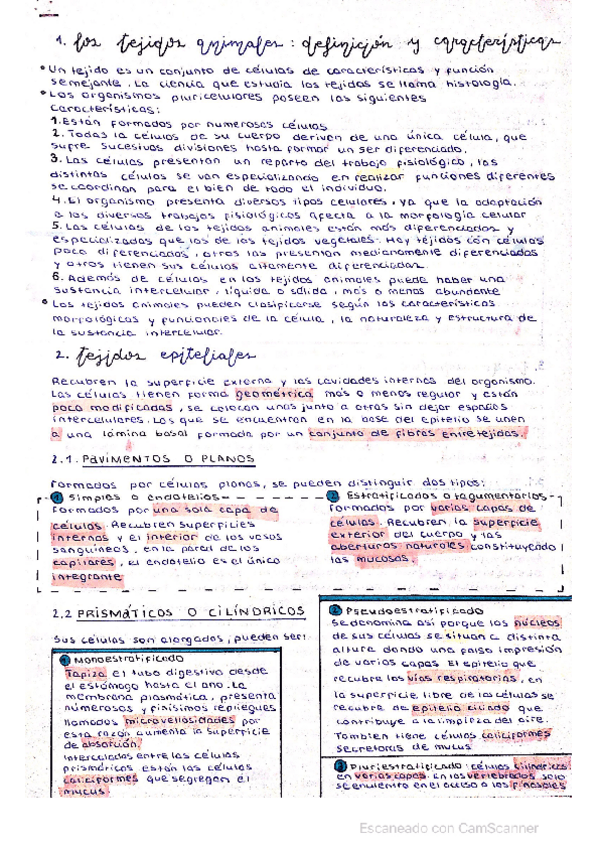 1. Los tejidos animales: definición y características
• Un tejido es un conjunto de células de características y función
semejante. La ciencia que estudia los tejidos se llama histología.
• Los organismos pluricelulares poseen las siguientes
características:
1. Están formados por numerosas células
2. Todas la células de su cuerpo derivan de una única célula, que
sufre sucesivas divisiones hasta formar un ser diferenciado.
3. Las células presentan un reparto del trabajo fisiológico, las
distintas células se van especializando en realizar funciones diferentes
se coordinan para el bien de todo el individuo.
4. El organismo presenta diversos tipos celulares, ya que la adaptación
a los diversos trabajos fisiológicos afecta a la morfología celular
5. Las células de los tejidos animales están más diferenciadas y
especializadas que los de los tejidos vegetales. Hay tejidos con células
poco diferenciados, otros las presentan medianamente diferenciadas
y otros tienen sus células altamente diferenciadas.
6. Además de células en los tejidos animales puede haber una
sustancia intercelular, líquida o sólida, más o menos abundante
• Los tejidos animales pueden clasificarse según las características
morfológicos y funcionales de la célula, la naturaleza y estructura de
la sustancia intercelular.
2. Tejidos epiteliales
Recubren la superficie externa y las cavidades internas del organismo.
Las células tienen forma geométrica más o menos regular y están
poco modificadas, se colocan unas junto a otras sin dejar espacios
intercelulares. Los que se encuentran en la base del epitelio se unen
a una lámina basal formada por un conjunto de fibras entretejidas.
2.1. PAVIMENTOS O PLANOS
Formados por células planas, se pueden distinguir dos tipos:
1 Simples o endotelios
Formados por una sola capa de
células. Recubren superficies
internas y el interior de los vasos
sanguíneos, en la pared de los
capilares, el endotelio es el único
integrante
2 Estratificados o tegumentarios
Formados por varias capas de
células. Recubren la superficie
exterior del cuerpo y las
aberturas naturales constituyendo
las mucosas.
2.2 PRISMÁTICOS O CILÍNDRICOS
Sus células son alargadas, pueden ser:
1 Monoestratificado
Tapiza el tubo digestivo desde
el estómago hasta el ano. La
membrana plasmática, presenta
numerosos y finísimos repliegues
llamados microvellosidades por
esta razón aumenta la superficie
de absorción.
Intercalados entre las células
prismáticas están las células
caliciformes que segregan el
mucus
2 Pseudoestratificado
Se denomina así porque los núcleos
de sus células se sitúan a distinta
altura dando una falsa impresión
de varias capas. El epitelio que
recubre las vías respiratorias, en
la superficie libre de las células se
recubre de epitelio ciliado que
contribuye a la limpieza del aire.
También tiene células caliciformes
secretoras de mucus
3 Pluriestratificado: células cilíndricas
en varias capas. En los vertebrados solo
se encuentra en el acceso a los
Escaneado con CamScanner